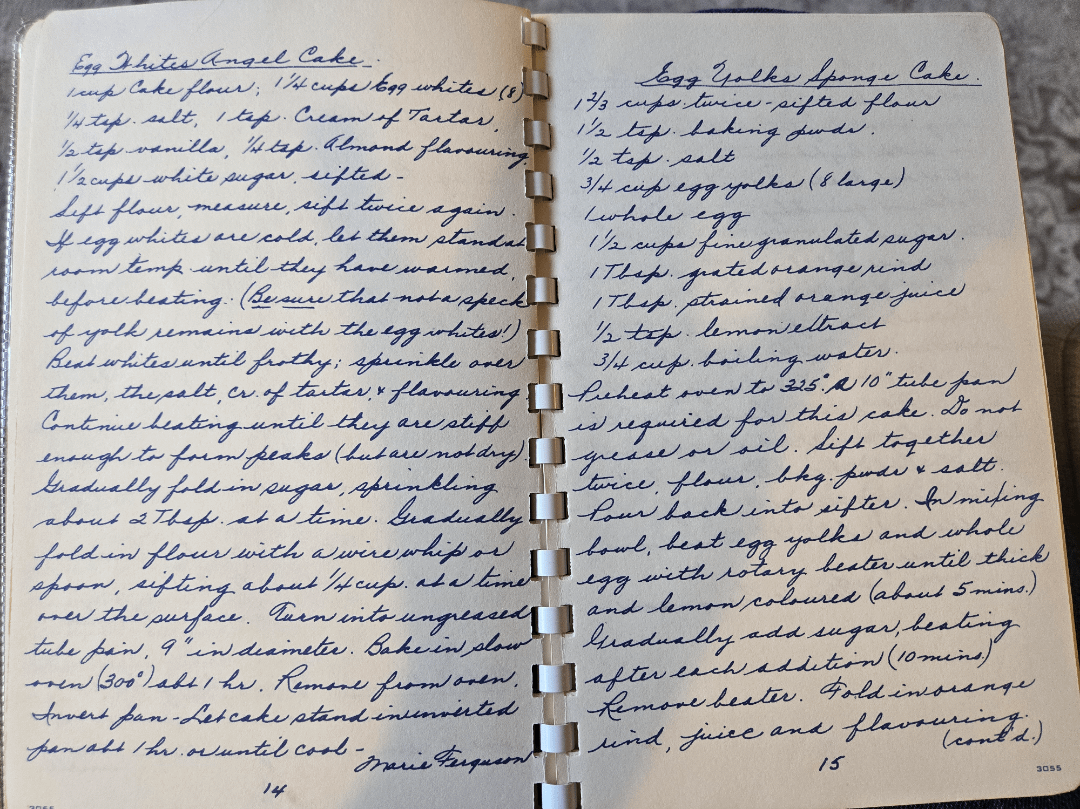 Egg Whites Angel Cake.
1 cup Cake flour; 1 1/4 cups Egg whites (8)
1/4 tsp. salt, 1 tsp. Cream of Tartar,
1/2 tsp vanilla, 1/4 tsp. Almond flavouring,
1 1/2 cups white sugar, sifted -
Sift flour, measure, sift twice again.
If egg whites are cold, let them stand at
room temp. until they have warmed,
before beating. (Be sure that not a speck
of yolk remains with the egg whites!)
Beat whites until frothy; sprinkle over
them, the salt, cr. of tartar, & flavouring
Continue beating until they are stiff
enough to form peaks (but are not dry)
Gradually fold in sugar, sprinkling
about 2 Tbsp. at a time. Gradually
fold in flour with a wire whip or
spoon, sifting about 1/4 cup. at a time
over the surface. Turn into ungreased
tube pan, 9" in diameter. Bake in slow
oven (300°) abt 1 hr. Remove from oven.
Invert pan - Let cake stand in inverted
pan abt 1 hr. or until cool -
Marie Ferguson
14
3055
Egg Yolks Sponge Cake.
1 2/3 cups twice-sifted flour
1 1/2 tsp. baking pwdr.
1/2 tsp. salt
3/4 cup egg yolks (8 large)
1 whole egg
1 1/2 cups fine granulated sugar.
1 Tbsp. grated orange rind
1 Tbsp. strained orange juice
1/2 tsp. lemon extract
3/4 cup. boiling water.
Preheat oven to 325°. A 10" tube pan
is required for this cake. Do not
grease or oil. Sift together
twice, flour, bkg. pwdr & salt.
Pour back into sifter. In mixing
bowl, beat egg yolks and whole
egg with rotary beater until thick
and lemon coloured (about 5 mins.)
Gradually add sugar, beating
after each addition (10 mins.)
Remove beater. Fold in orange
rind, juice and flavouring.
(cont'd.)
15
3055